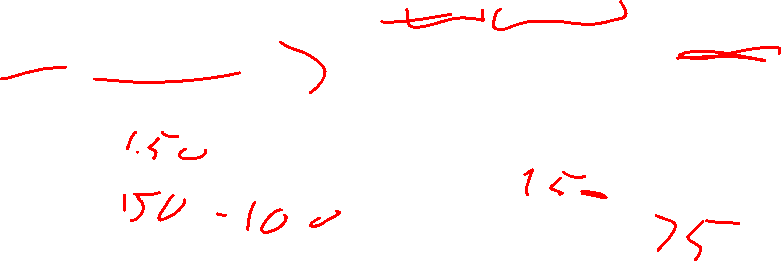 1.50
150-100
15-
75